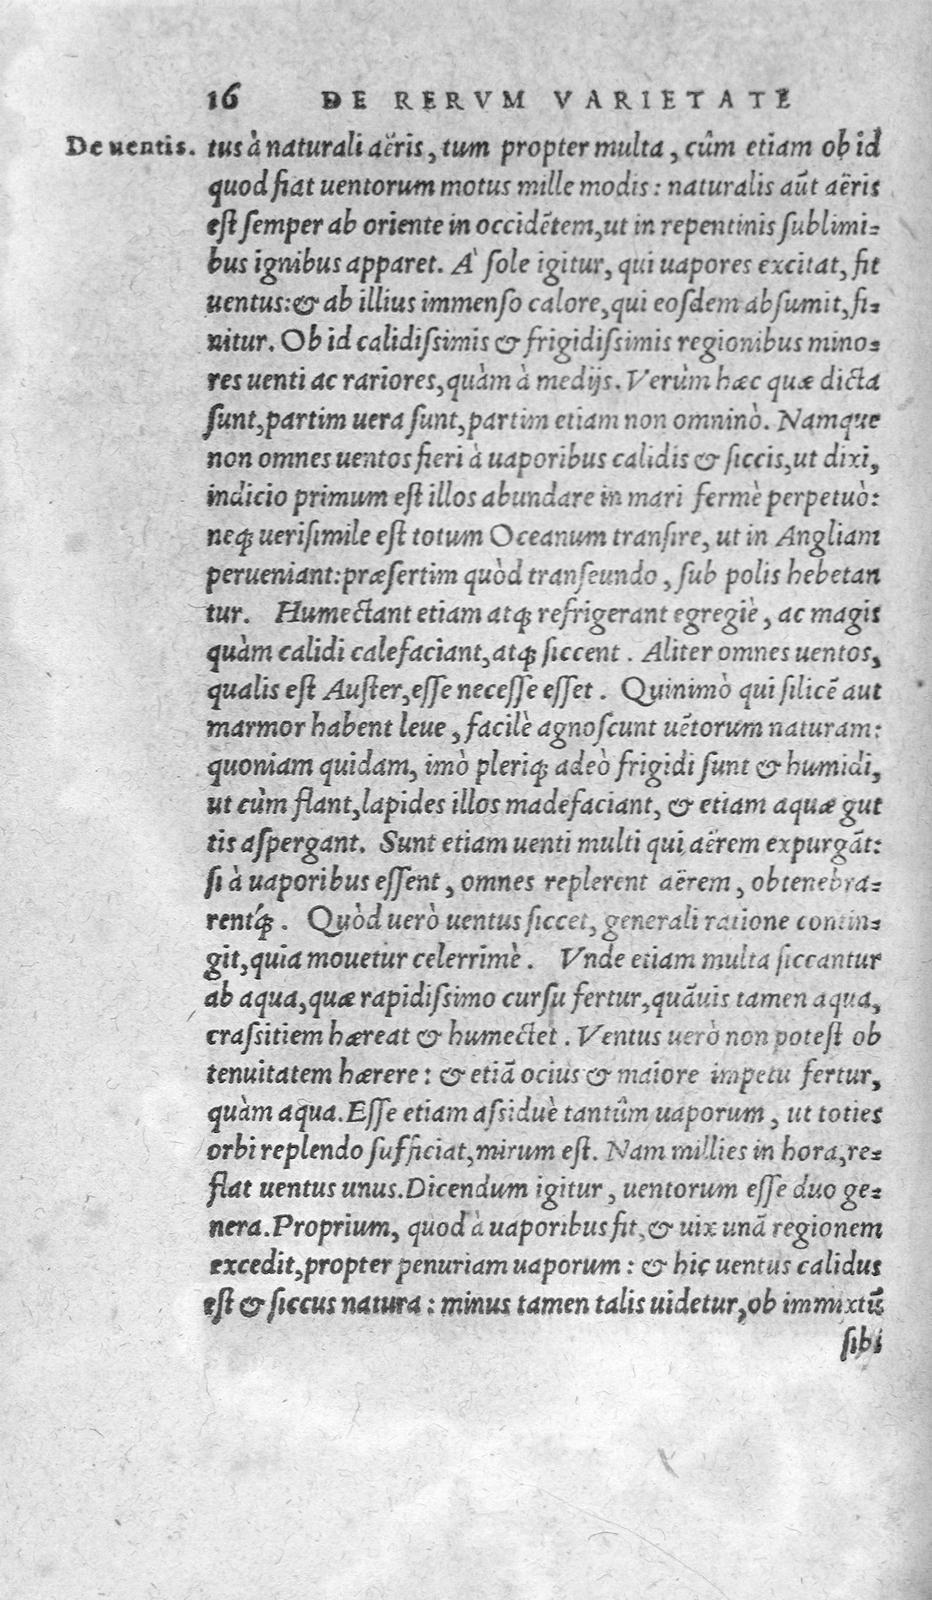 16 DE RERVM VARIETATE
De uentis. tus à naturali aëris, tum propter multa, cûm etiam ob id
quod fiat uentorum motus mille modis: naturalis aūt aëris
est semper ab oriente in occidētem, ut in repentinis sublimi-
bus ignibus apparet. A' sole igitur, qui uapores excitat, fit
uentus: & ab illius immenso calore, qui eosdem absumit, fi-
nitur. Ob id calidissimis & frigidissimis regionibus mino-
res uenti ac rariores, quàm à medijs. Verùm hæc quæ dicta
sunt, partim uera sunt, partim etiam non omninò. Namque
non omnes uentos fieri à uaporibus calidis & siccis, ut dixi,
indicio primum est illos abundare in mari fermè perpetuò:
neq; uerisimile est totum Oceanum transire, ut in Angliam
perueniant: præsertim quòd transeundo, sub polis hebetan
tur. Humectant etiam atq; refrigerant egregiè, ac magis
quàm calidi calefaciant, atq; siccent. Aliter omnes uentos,
qualis est Auster, esse necesse esset. Quinimò qui silicē aut
marmor habent leue, facilè agnoscunt uētorum naturam:
quoniam quidam, imò pleriq; adeò frigidi sunt & humidi,
ut cùm flant, lapides illos madefaciant, & etiam aquæ gut
tis aspergant. Sunt etiam uenti multi qui aërem expurgāt:
si à uaporibus essent, omnes replerent aërem, obtenebra-
rentq́;. Quòd uerò uentus siccet, generali ratione contin-
git, quia mouetur celerrimè. Vnde etiam multa siccantur
ab aqua, quæ rapidissimo cursu fertur, quāuis tamen aqua,
crassitiem hæreat & humectet. Ventus uerò non potest ob
tenuitatem hærere: & etiā ocius & maiore impetu fertur,
quàm aqua. Esse etiam assiduè tantûm uaporum, ut toties
orbi replendo sufficiat, mirum est. Nam millies in hora, re-
flat uentus unus. Dicendum igitur, uentorum esse duo ge-
nera. Proprium, quod à uaporibus fit, & uix unā regionem
excedit, propter penuriam uaporum: & hic uentus calidus
est & siccus natura: minus tamen talis uidetur, ob immixtū
sibi